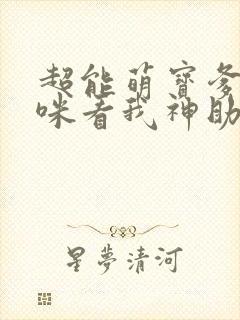 超能萌寶爹
咪看我神助
星夢清河